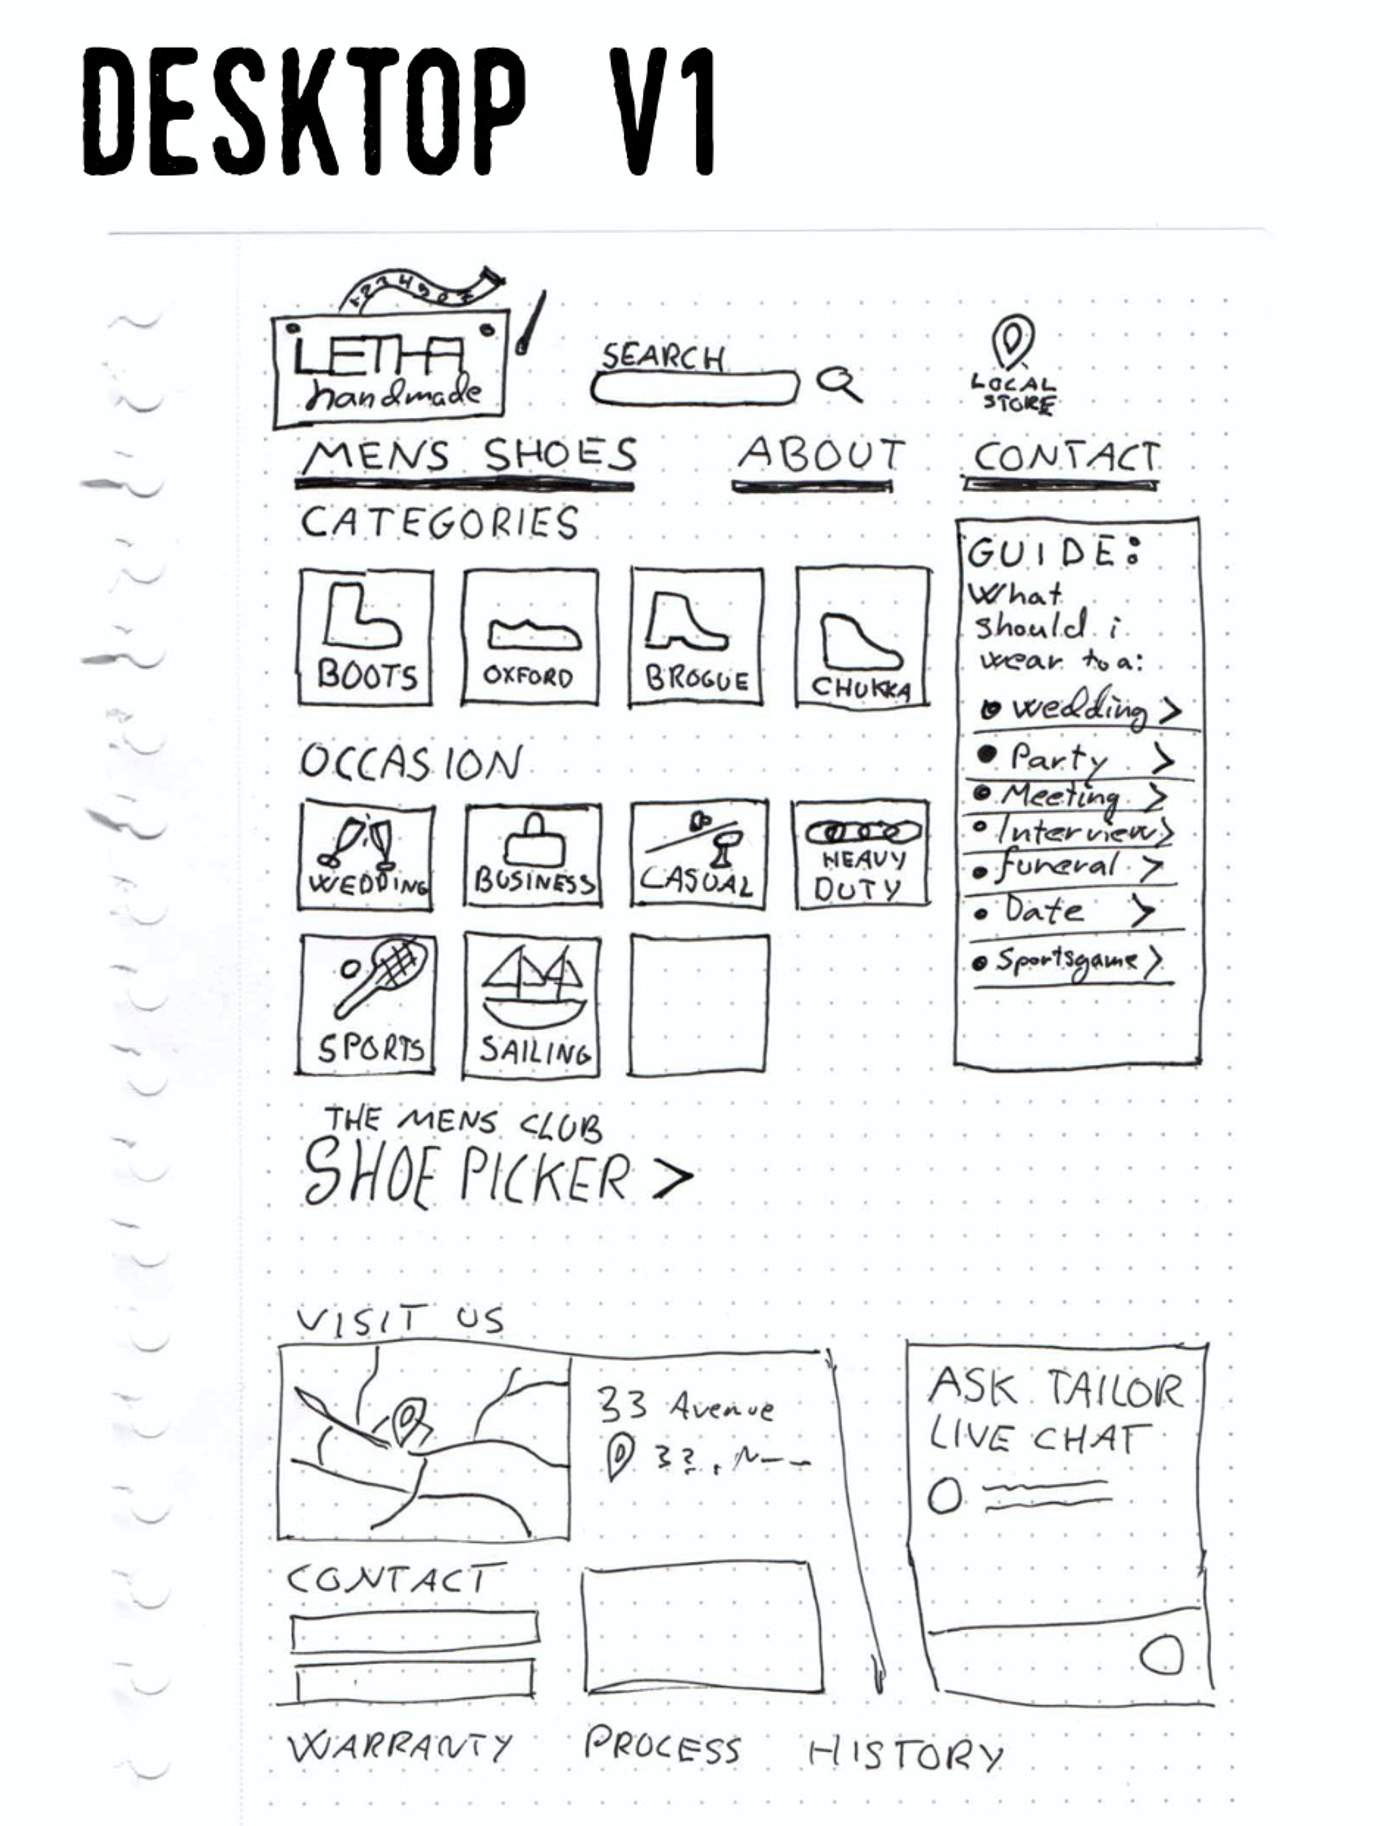 DESKTOP V1
LETHA
handmade
SEARCH
LOCAL
STORE
MENS SHOES
ABOUT
CONTACT
CATEGORIES
BOOTS
OXFORD
BROGUE
CHUKKA
OCCASION
WEDDING
BUSINESS
CASUAL
HEAVY
DUTY
SPORTS
SAILING
GUIDE:
What
should i
wear to a:
wedding >
Party >
Meeting >
Interview >
funeral >
Date >
Sportsgame >
THE MENS CLUB
SHOE PICKER >
VISIT US
33 Avenue
ASK TAILOR
LIVE CHAT
CONTACT
WARRANTY
PROCESS
HISTORY